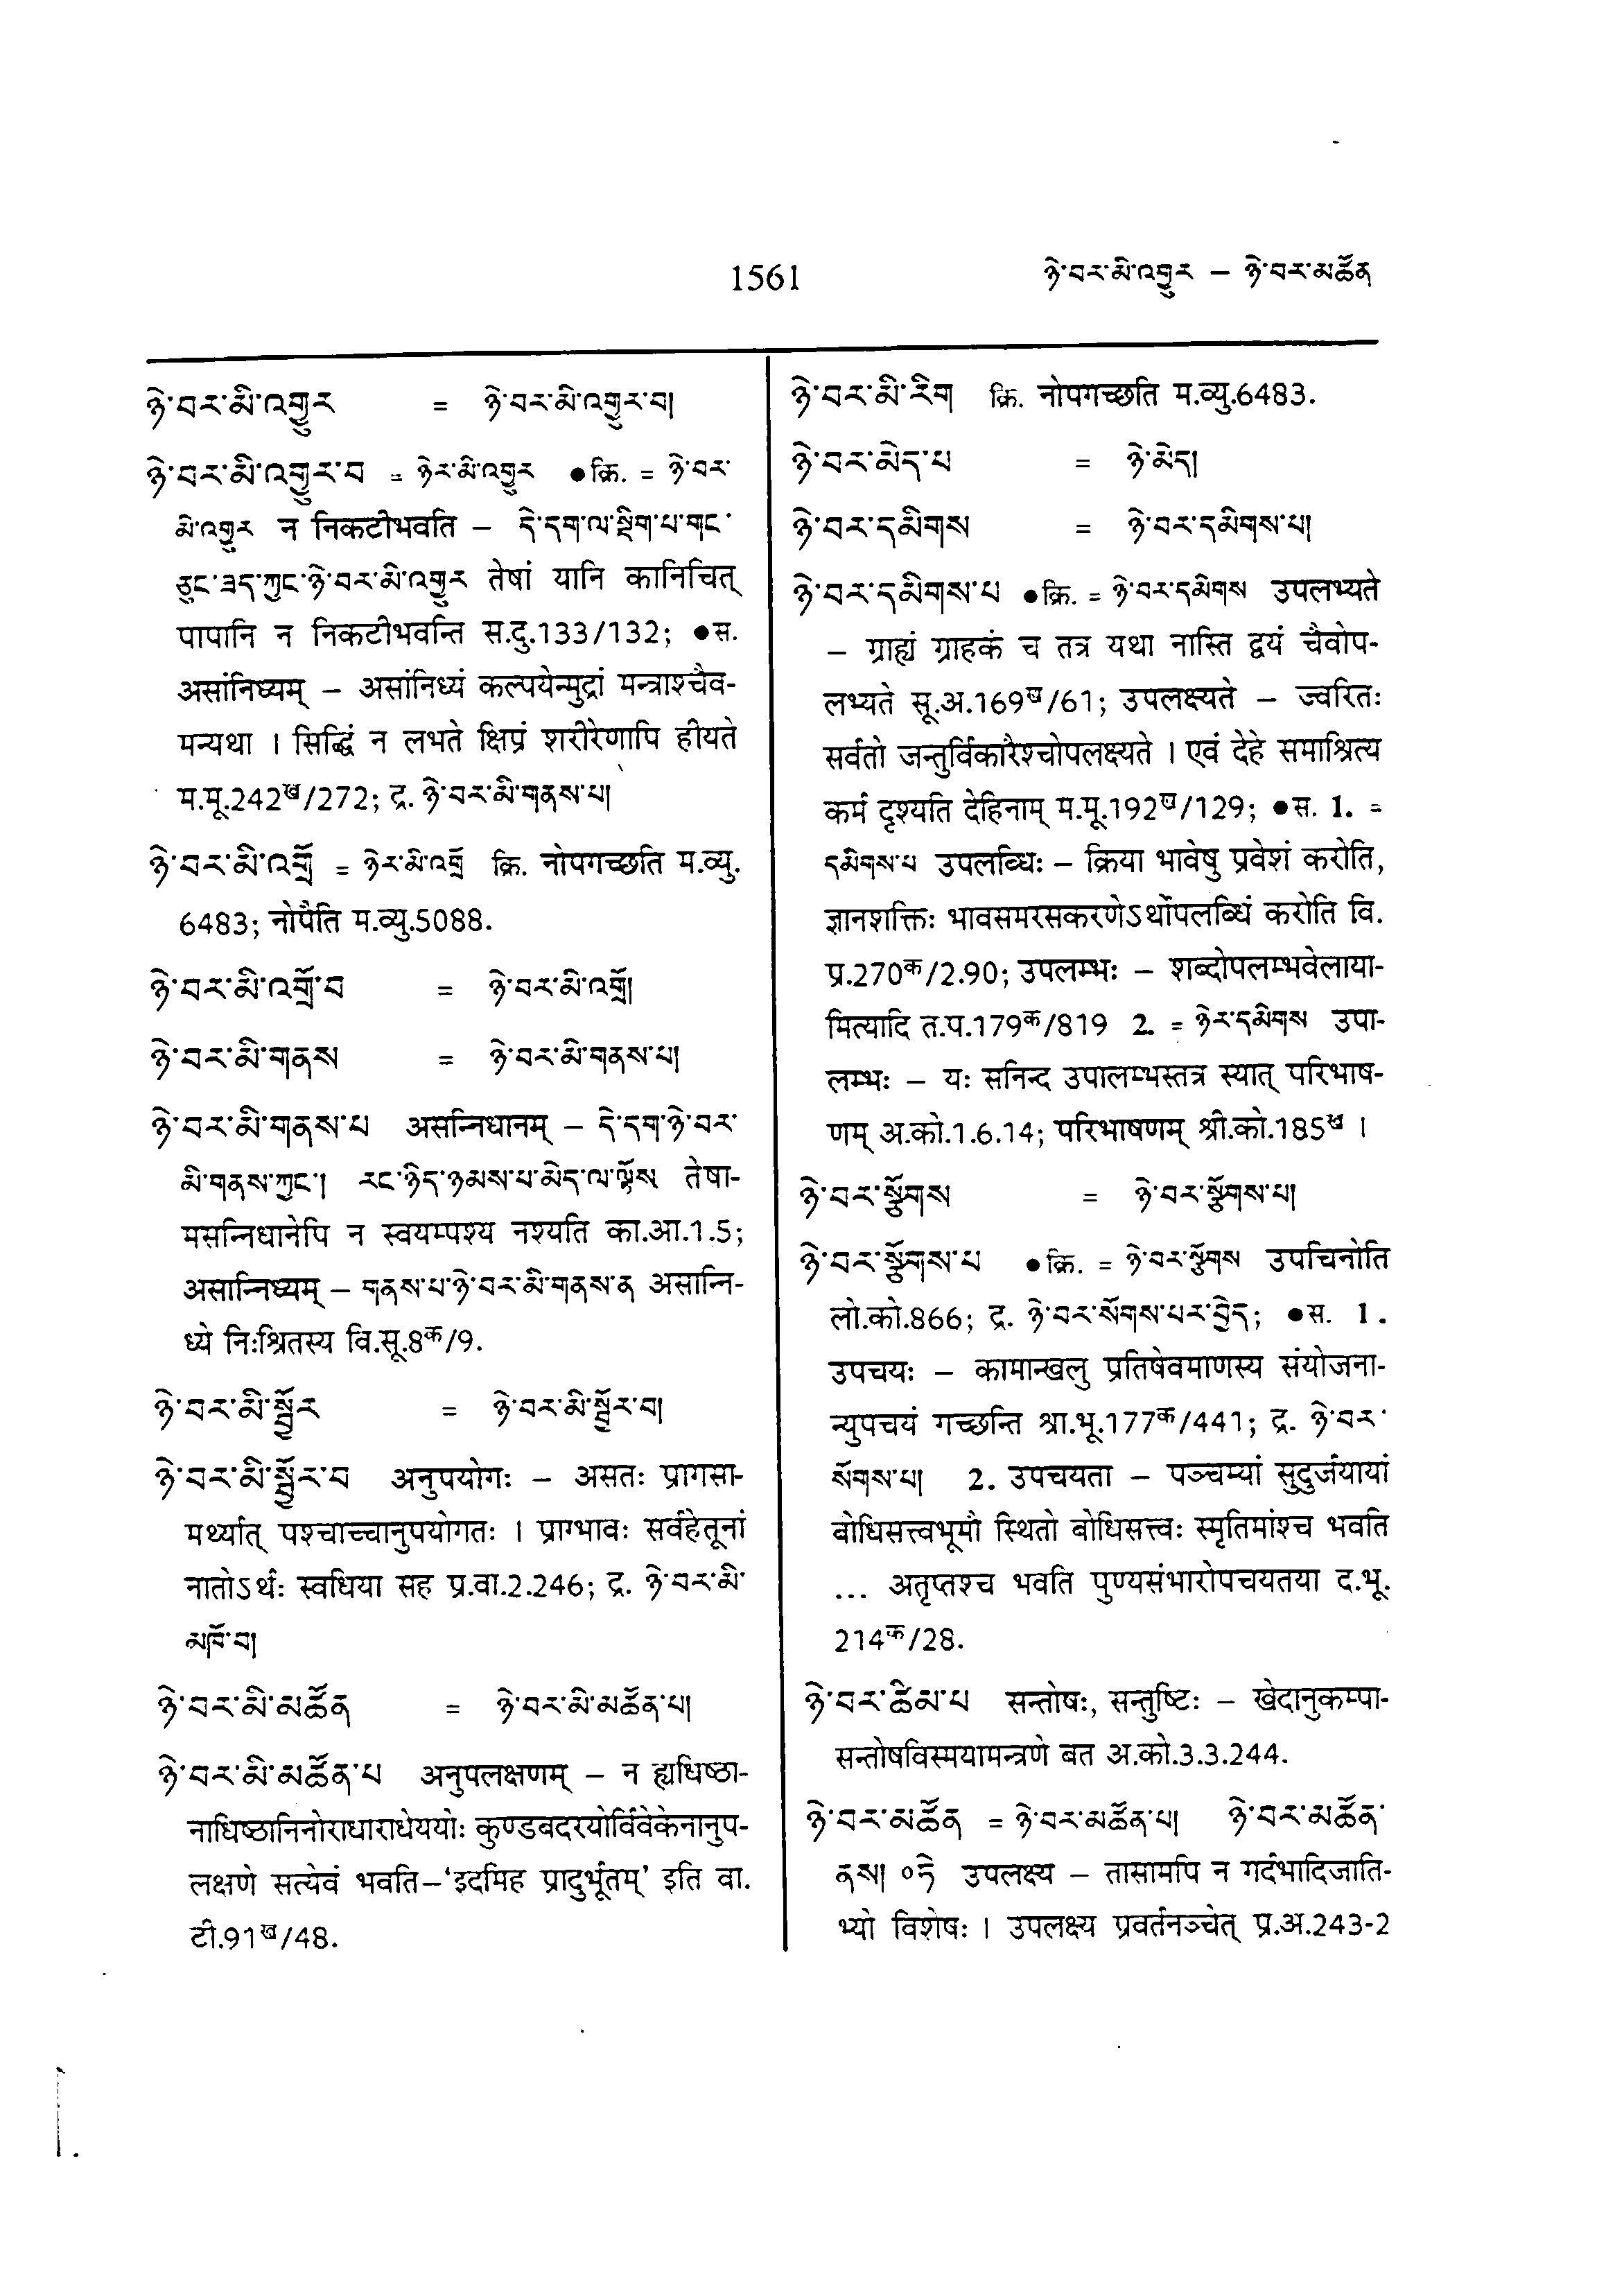 1561
ཉེ་བར་མི་འགྱུར – ཉེ་བར་མཚོན
ཉེ་བར་མི་འགྱུར = ཉེ་བར་མི་འགྱུར་བ།
ཉེ་བར་མི་འགྱུར་བ = ཉེར་མི་འགྱུར ●क्रि. = ཉེ་བར་
མི་འགྱུར न निकटीभवति – དེ་དག་ལ་སྡིག་པ་གང་
ཅུང་ཟད་ཀྱང་ཉེ་བར་མི་འགྱུར तेषां यानि कानिचित्
पापानि न निकटीभवन्ति स.दु.133/132; ●स.
असांनिध्यम् – असांनिध्यं कल्पयेन्मुद्रां मन्त्राश्चैव-
मन्यथा । सिद्धिं न लभते क्षिप्रं शरीरेणापि हीयते
म.मू.242ख/272; द्र. ཉེ་བར་མི་གནས་པ།
ཉེ་བར་མི་འགྲོ = ཉེར་མི་འགྲོ क्रि. नोपगच्छति म.व्यु.
6483; नोपैति म.व्यु.5088.
ཉེ་བར་མི་འགྲོ་བ = ཉེ་བར་མི་འགྲོ།
ཉེ་བར་མི་གནས = ཉེ་བར་མི་གནས་པ།
ཉེ་བར་མི་གནས་པ असन्निधानम् – དེ་དག་ཉེ་བར་
མི་གནས་ཀྱང་། རང་ཉིད་ཉམས་པ་མེད་ལ་ལྟོས तेषा-
मसन्निधानेपि न स्वयम्पश्य नश्यति का.आ.1.5;
असान्निध्यम् – གནས་པ་ཉེ་བར་མི་གནས་ན असान्नि-
ध्ये निःश्रितस्य वि.सू.8क/9.
ཉེ་བར་མི་སྦྱོར = ཉེ་བར་མི་སྦྱོར་བ།
ཉེ་བར་མི་སྦྱོར་བ अनुपयोगः – असतः प्रागसा-
मर्थ्यात् पश्चाच्चानुपयोगतः । प्राग्भावः सर्वहेतूनां
नातोऽर्थः स्वधिया सह प्र.वा.2.246; द्र. ཉེ་བར་མི་
མཁོ་བ།
ཉེ་བར་མི་མཚོན = ཉེ་བར་མི་མཚོན་པ།
ཉེ་བར་མི་མཚོན་པ अनुपलक्षणम् – न ह्यधिष्ठा-
नाधिष्ठानिनोराधाराधेययोः कुण्डबदरयोर्विवेकेनानुप-
लक्षणे सत्येवं भवति–‘इदमिह प्रादुर्भूतम्’ इति वा.
टी.91ख/48.
ཉེ་བར་མི་རིག क्रि. नोपगच्छति म.व्यु.6483.
ཉེ་བར་མེད་པ = ཉེ་མེད།
ཉེ་བར་དམིགས = ཉེ་བར་དམིགས་པ།
ཉེ་བར་དམིགས་པ ●क्रि. = ཉེ་བར་དམིགས उपलभ्यते
– ग्राह्यं ग्राहकं च तत्र यथा नास्ति द्वयं चैवोप-
लभ्यते सू.अ.169ख/61; उपलक्ष्यते – ज्वरितः
सर्वतो जन्तुर्विकारैश्चोपलक्ष्यते । एवं देहे समाश्रित्य
कर्म दृश्यति देहिनाम् म.मू.192ख/129; ●स. 1. =
དམིགས་པ उपलब्धिः – क्रिया भावेषु प्रवेशं करोति,
ज्ञानशक्तिः भावसमरसकरणेऽर्थोपलब्धिं करोति वि.
प्र.270क/2.90; उपलम्भः – शब्दोपलम्भवेलाया-
मित्यादि त.प.179क/819 2. = ཉེར་དམིགས उपा-
लम्भः – यः सनिन्द उपालम्भस्तत्र स्यात् परिभाष-
णम् अ.को.1.6.14; परिभाषणम् श्री.को.185ख ।
ཉེ་བར་སྩོགས = ཉེ་བར་སྩོགས་པ།
ཉེ་བར་སྩོགས་པ ●क्रि. = ཉེ་བར་སྩོགས उपचिनोति
लो.को.866; द्र. ཉེ་བར་སོགས་པར་བྱེད; ●स. 1.
उपचयः – कामान्खलु प्रतिषेवमाणस्य संयोजना-
न्युपचयं गच्छन्ति श्रा.भू.177क/441; द्र. ཉེ་བར་
སོགས་པ། 2. उपचयता – पञ्चम्यां सुदुर्जयायां
बोधिसत्त्वभूमौ स्थितो बोधिसत्त्वः स्मृतिमांश्च भवति
... अतृप्तश्च भवति पुण्यसंभारोपचयतया द.भू.
214क/28.
ཉེ་བར་ཚིམ་པ सन्तोषः, सन्तुष्टिः – खेदानुकम्पा-
सन्तोषविस्मयामन्त्रणे बत अ.को.3.3.244.
ཉེ་བར་མཚོན = ཉེ་བར་མཚོན་པ། ཉེ་བར་མཚོན་
ནས། ༠ཏེ उपलक्ष्य – तासामपि न गर्दभादिजाति-
भ्यो विशेषः । उपलक्ष्य प्रवर्तनञ्चेत् प्र.अ.243-2